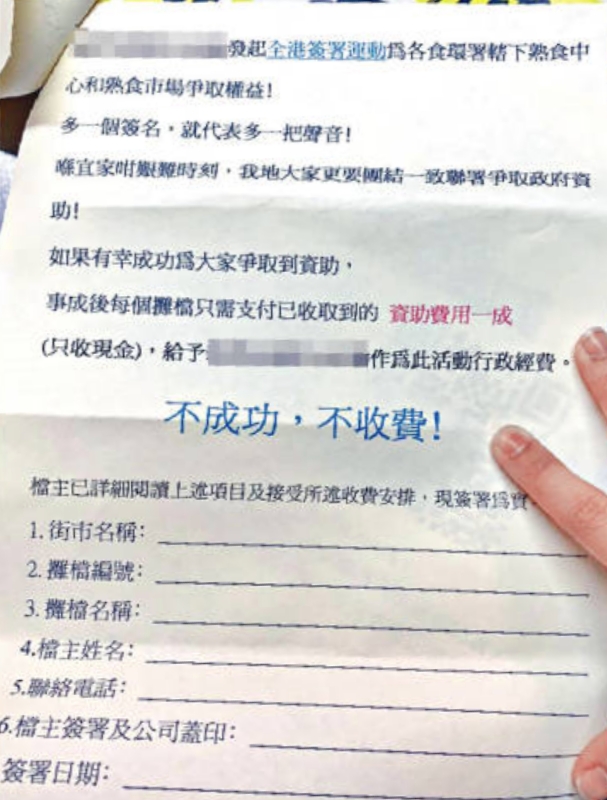 發起全港簽署運動為各食環署轄下熟食中
心和熟食市場爭取權益!
多一個簽名，就代表多一把聲音!
喺宜家咁艱難時刻，我地大家更要團結一致聯署爭取政府資
助!
如果有幸成功為大家爭取到資助，
事成後每個攤檔只需支付已收取到的 資助費用一成
(只收現金)，給予 作為此活動行政經費。
不成功，不收費!
檔主已詳細閱讀上述項目及接受所述收費安排，現簽署為實
1. 街市名稱:
2. 攤檔編號:
3. 攤檔名稱:
4.檔主姓名:
5.聯絡電話:
6.檔主簽署及公司蓋印:
簽署日期: